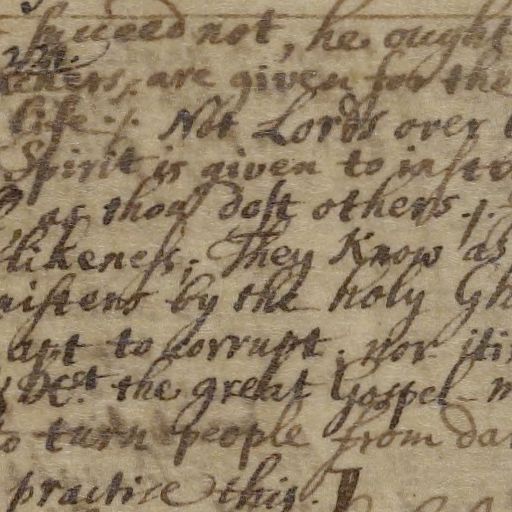 succeed not, he ought
are given for the
life. Not Lords over
Spirit is given to
as thou dost others.
likeness; They Know as
by the holy Gh
apt to corrupt, nor
the great Gospel-m
to turn people from dar
practise this.